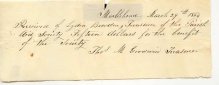 Marblehead March 29th 1864
Received of Lydia Bowden, Treasurer of the Fourth
Aid Society Fifteen dollars for the benefit
of the Society.
Thos M. Goodwin Treasurer